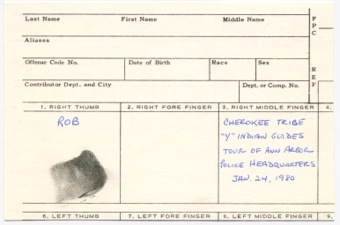 Last Name First Name Middle Name
F
P
C
Aliases
Offense Code No. Date of Birth Race Sex
R
E
F
Contributor Dept. and City Dept. or Comp. No.
1. RIGHT THUMB 2. RIGHT FORE FINGER 3. RIGHT MIDDLE FINGER 4.
ROB
CHEROKEE TRIBE
"Y" INDIAN GUIDES
TOUR OF ANN ARBOR
POLICE HEADQUARTERS
JAN. 24, 1980
6. LEFT THUMB 7. LEFT FORE FINGER 8. LEFT MIDDLE FINGER 9.